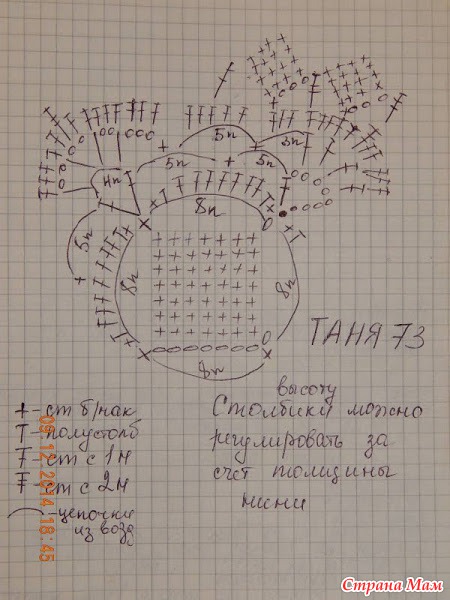 5п
3п
5п
5п
4п
8п
5п
8п
8п
8п
ТАНЯ 73
+ - ст б/нак
Т - полустолб
Ŧ - ст с 1н
ст с 2н
- цепочка
из возд
высоту
Столбики можно
регулировать за
счет толщины
нити
09.12.2014 18:45
Страна Мам